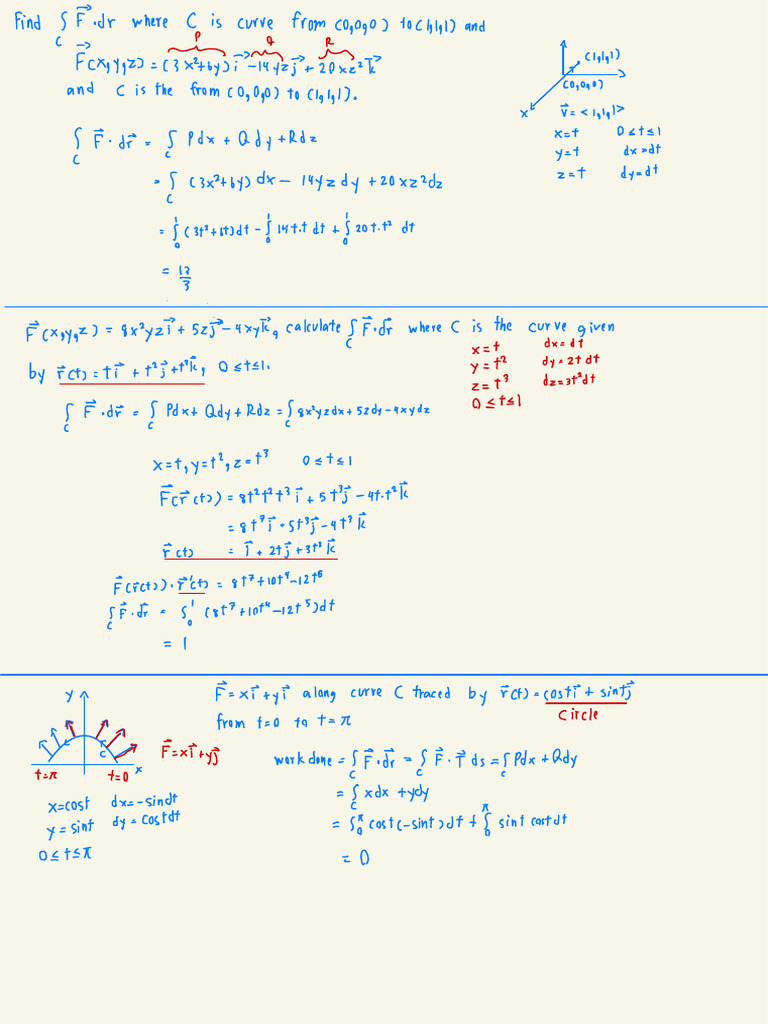 Find ∫_C F⃗·dr where C is curve from (0,0,0) to (1,1,1) and
P Q R
F⃗(x,y,z) = (3x²+6y) i⃗ -14yz j⃗ + 20xz² k⃗
and C is the from (0,0,0) to (1,1,1).
(1,1,1)
(0,0,0)
x
v⃗ = <1,1,1>
x=t 0≤t≤1
y=t dx=dt
z=t dy=dt
∫_C F⃗·dr⃗ = ∫_C Pdx + Qdy + Rdz
= ∫_C (3x²+6y) dx - 14yz dy + 20xz² dz
= ∫₀¹ (3t²+6t)dt - ∫₀¹ 14t.t dt + ∫₀¹ 20t.t² dt
= 13/3
F⃗(x,y,z) = 8x²yz i⃗ + 5z j⃗ - 4xy k⃗, calculate ∫_C F⃗·dr⃗ where C is the curve given
by r⃗(t) = t i⃗ + t² j⃗ + t³ k⃗, 0≤t≤1.
x=t dx=dt
y=t² dy=2t dt
z=t³ dz=3t²dt
0≤t≤1
∫_C F⃗·dr⃗ = ∫_C Pdx + Qdy + Rdz = ∫_C 8x²yzdx + 5zdy - 4xydz
x=t, y=t², z=t³ 0≤t≤1
F⃗(r⃗(t)) = 8t²t²t³ i⃗ + 5t³ j⃗ - 4t.t² k⃗
= 8t⁷ i⃗ + 5t³ j⃗ - 4t³ k⃗
r⃗(t) = i⃗ + 2t j⃗ + 3t² k⃗
F⃗(r(t))·r⃗'(t) = 8t⁷ + 10t⁴ - 12t⁵
∫_C F⃗·dr⃗ = ∫₀¹ (8t⁷ + 10t⁴ - 12t⁵)dt
= 1
F⃗ = x i⃗ + y i⃗ along curve C traced by r⃗(t) = cost i⃗ + sint j⃗
circle
from t=0 to t=π
y
C
F⃗ = x i⃗ + y j⃗
t=π t=0 x
x=cost dx=-sindt
y=sint dy=costdt
0≤t≤π
work done = ∫_C F⃗·dr⃗ = ∫_C F⃗·T⃗ ds = ∫_C Pdx + Qdy
= ∫_C xdx + ydy
= ∫₀^π cost(-sint)dt + ∫₀^π sint costdt
= 0